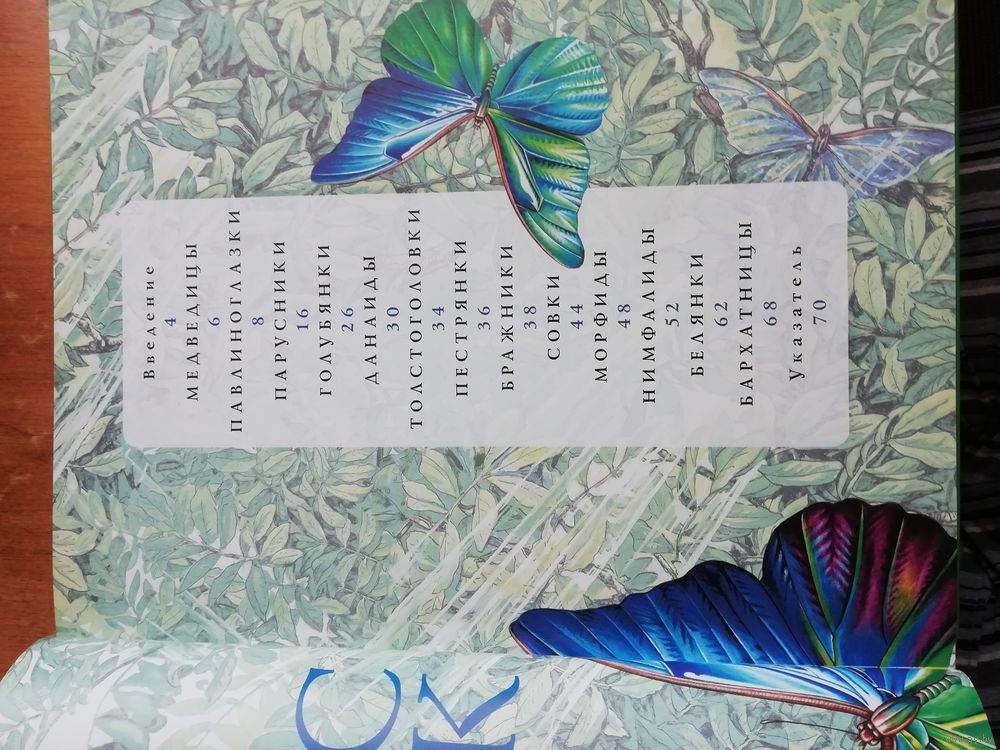 Введение
4
МЕДВЕДИЦЫ
6
ПАВЛИНОГЛАЗКИ
8
ПАРУСНИКИ
16
ГОЛУБЯНКИ
26
ДАНАИДЫ
30
ТОЛСТОГОЛОВКИ
34
ПЕСТРЯНКИ
36
БРАЖНИКИ
38
СОВКИ
44
МОРФИДЫ
48
НИМФАЛИДЫ
52
БЕЛЯНКИ
62
БАРХАТНИЦЫ
68
Указатель
70
С
К